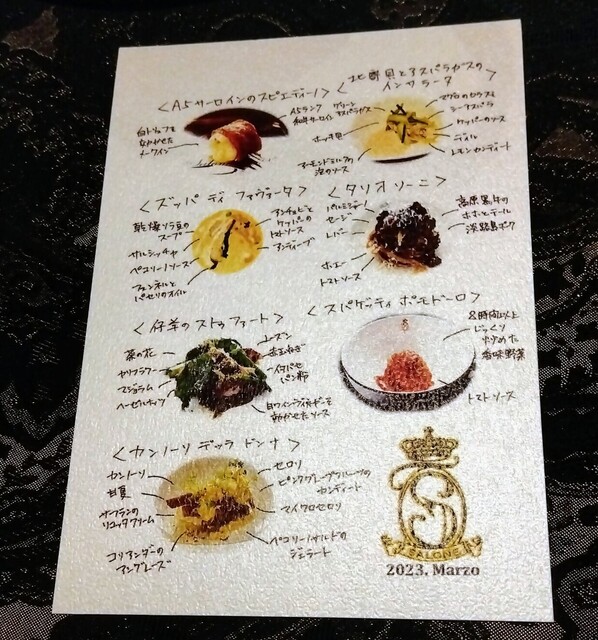 <A5サーロインのスピエディーノ>
A5ランク
和牛サーロイン
白トリュフを
<北寄貝とアスパラガスの
インサラータ>
グリーン
アスパラガス
ホッキ貝
ケッパーのソース
ディル
レモンカンディート
アーモンドミルクの
泡のソース
<ズッパ ディ ファヴァータ>
乾燥ソラ豆の
スープ
サルシッチャ
ペコリーノソース
フェンネルと
パセリのオイル
アンチョビと
ケッパーの
トマトソース
アンディーブ
<タリオリーニ>
パルミジャーノ
セージ
レバー
ホエー
トマトソース
高原黒牛の
ホホとテール
淡路島ポーク
<仔羊のストゥファート>
菜の花
カリフラワー
マジョラム
ヘーゼルナッツ
レズン
赤玉ねぎ
イタパセ
パン粉
白ワインヴィネガーを
効かせたソース
<スパゲッティ ポモドーロ>
8時間以上
じっくり
炒めた
香味野菜
トマトソース
<カンノーリ デッラ ドンナ>
カンノーリ
甘夏
サフランの
リコッタクリーム
コリアンダーの
アングレーズ
セロリ
ピンクグレープフルーツの
カンディート
マイクロセロリ
ペコリーノサルドの
ジェラート
SALONE
2023. Marzo